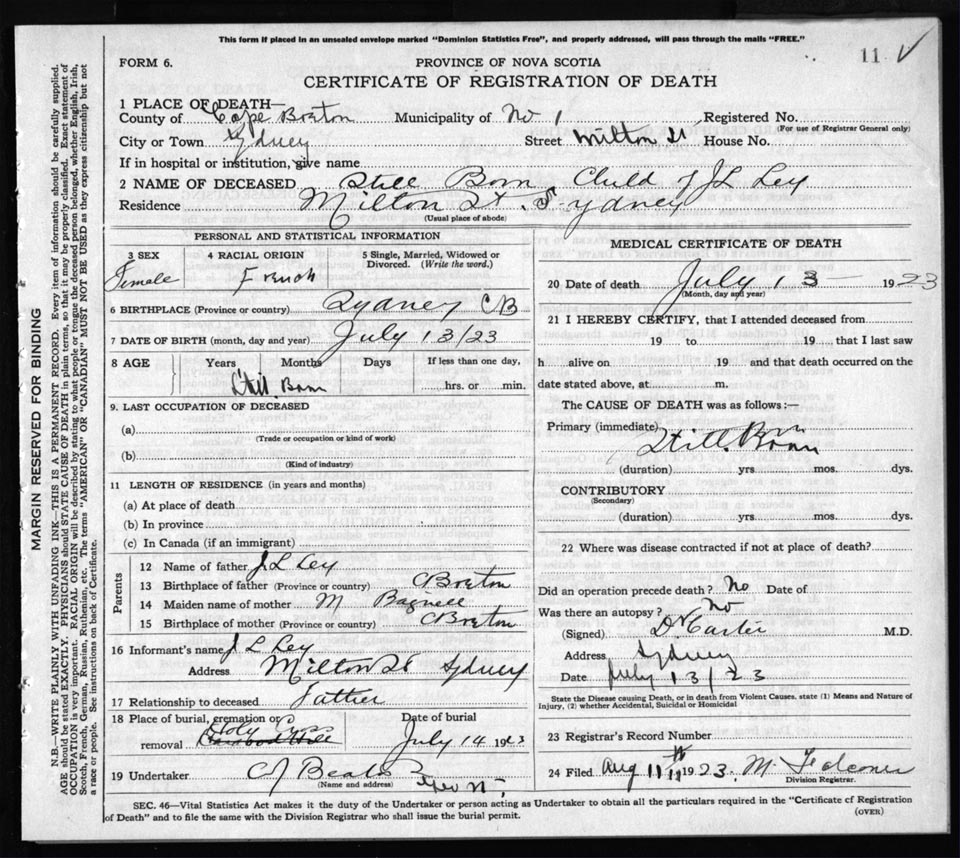 This form if placed in an unsealed envelope marked "Dominion Statistics Free", and properly addressed, will pass through the mails "FREE."
11 V
FORM 6.
PROVINCE OF NOVA SCOTIA
CERTIFICATE OF REGISTRATION OF DEATH
1 PLACE OF DEATH—
County of Cape Breton Municipality of No 1 Registered No.
(For use of Registrar General only)
City or Town Sydney Street Milton St House No.
If in hospital or institution, give name
2 NAME OF DECEASED Still Born Child of J L Ley
Residence Milton St. Sydney
(Usual place of abode)
PERSONAL AND STATISTICAL INFORMATION
3 SEX 4 RACIAL ORIGIN 5 Single, Married, Widowed or Divorced. (Write the word.)
Female French
6 BIRTHPLACE (Province or country) Sydney CB
7 DATE OF BIRTH (month, day and year) July 13/23
8 AGE Years Months Days If less than one day,
Still Born hrs. or min.
9. LAST OCCUPATION OF DECEASED
(a)
(Trade or occupation or kind of work)
(b)
(Kind of industry)
11 LENGTH OF RESIDENCE (in years and months)
(a) At place of death
(b) In province
(c) In Canada (if an immigrant)
Parents
12 Name of father J L Ley
13 Birthplace of father (Province or country) C Breton
14 Maiden name of mother M Bagnell
15 Birthplace of mother (Province or country) C Breton
16 Informant's name J L Ley
Address Milton St Sydney
17 Relationship to deceased Father
18 Place of burial, cremation or removal Holy Cross
Date of burial
July 14 1923
19 Undertaker C J Beaton
(Name and address)
MEDICAL CERTIFICATE OF DEATH
20 Date of death July 13 1923
(Month, day and year)
21 I HEREBY CERTIFY, that I attended deceased from
19 to 19 that I last saw
h alive on 19 and that death occurred on the
date stated above, at m.
The CAUSE OF DEATH was as follows:—
Primary (immediate)
Still Born
(duration) yrs mos. dys.
CONTRIBUTORY
(Secondary)
(duration) yrs mos. dys.
22 Where was disease contracted if not at place of death?
Did an operation precede death? No Date of
Was there an autopsy? No
(Signed) Dr Carter M.D.
Address Sydney
Date July 13/23
State the Disease causing Death, or in death from Violent Causes, state (1) Means and Nature of
Injury, (2) whether Accidental, Suicidal or Homicidal
23 Registrar's Record Number
24 Filed Aug 11 1923. M. Falconer
Division Registrar.
SEC. 46—Vital Statistics Act makes it the duty of the Undertaker or person acting as Undertaker to obtain all the particulars required in the "Certificate of Registration
of Death" and to file the same with the Division Registrar who shall issue the burial permit.
(OVER)
MARGIN RESERVED FOR BINDING
N.B.—WRITE PLAINLY WITH UNFADING INK—THIS IS A PERMANENT RECORD. Every item of information should be carefully supplied.
AGE should be stated EXACTLY. PHYSICIANS should STATE CAUSE OF DEATH in plain terms, so that it may be properly classified. Exact statement of
OCCUPATION is very important. RACIAL ORIGIN will be described by stating to what people or tongue the deceased person belonged, whether English, Irish,
Scotch, French, German, Russian, Ruthenian, etc. The terms "AMERICAN" OR "CANADIAN" MUST NOT BE USED as they express citizenship but not
a race or people. See instructions on back of Certificate.